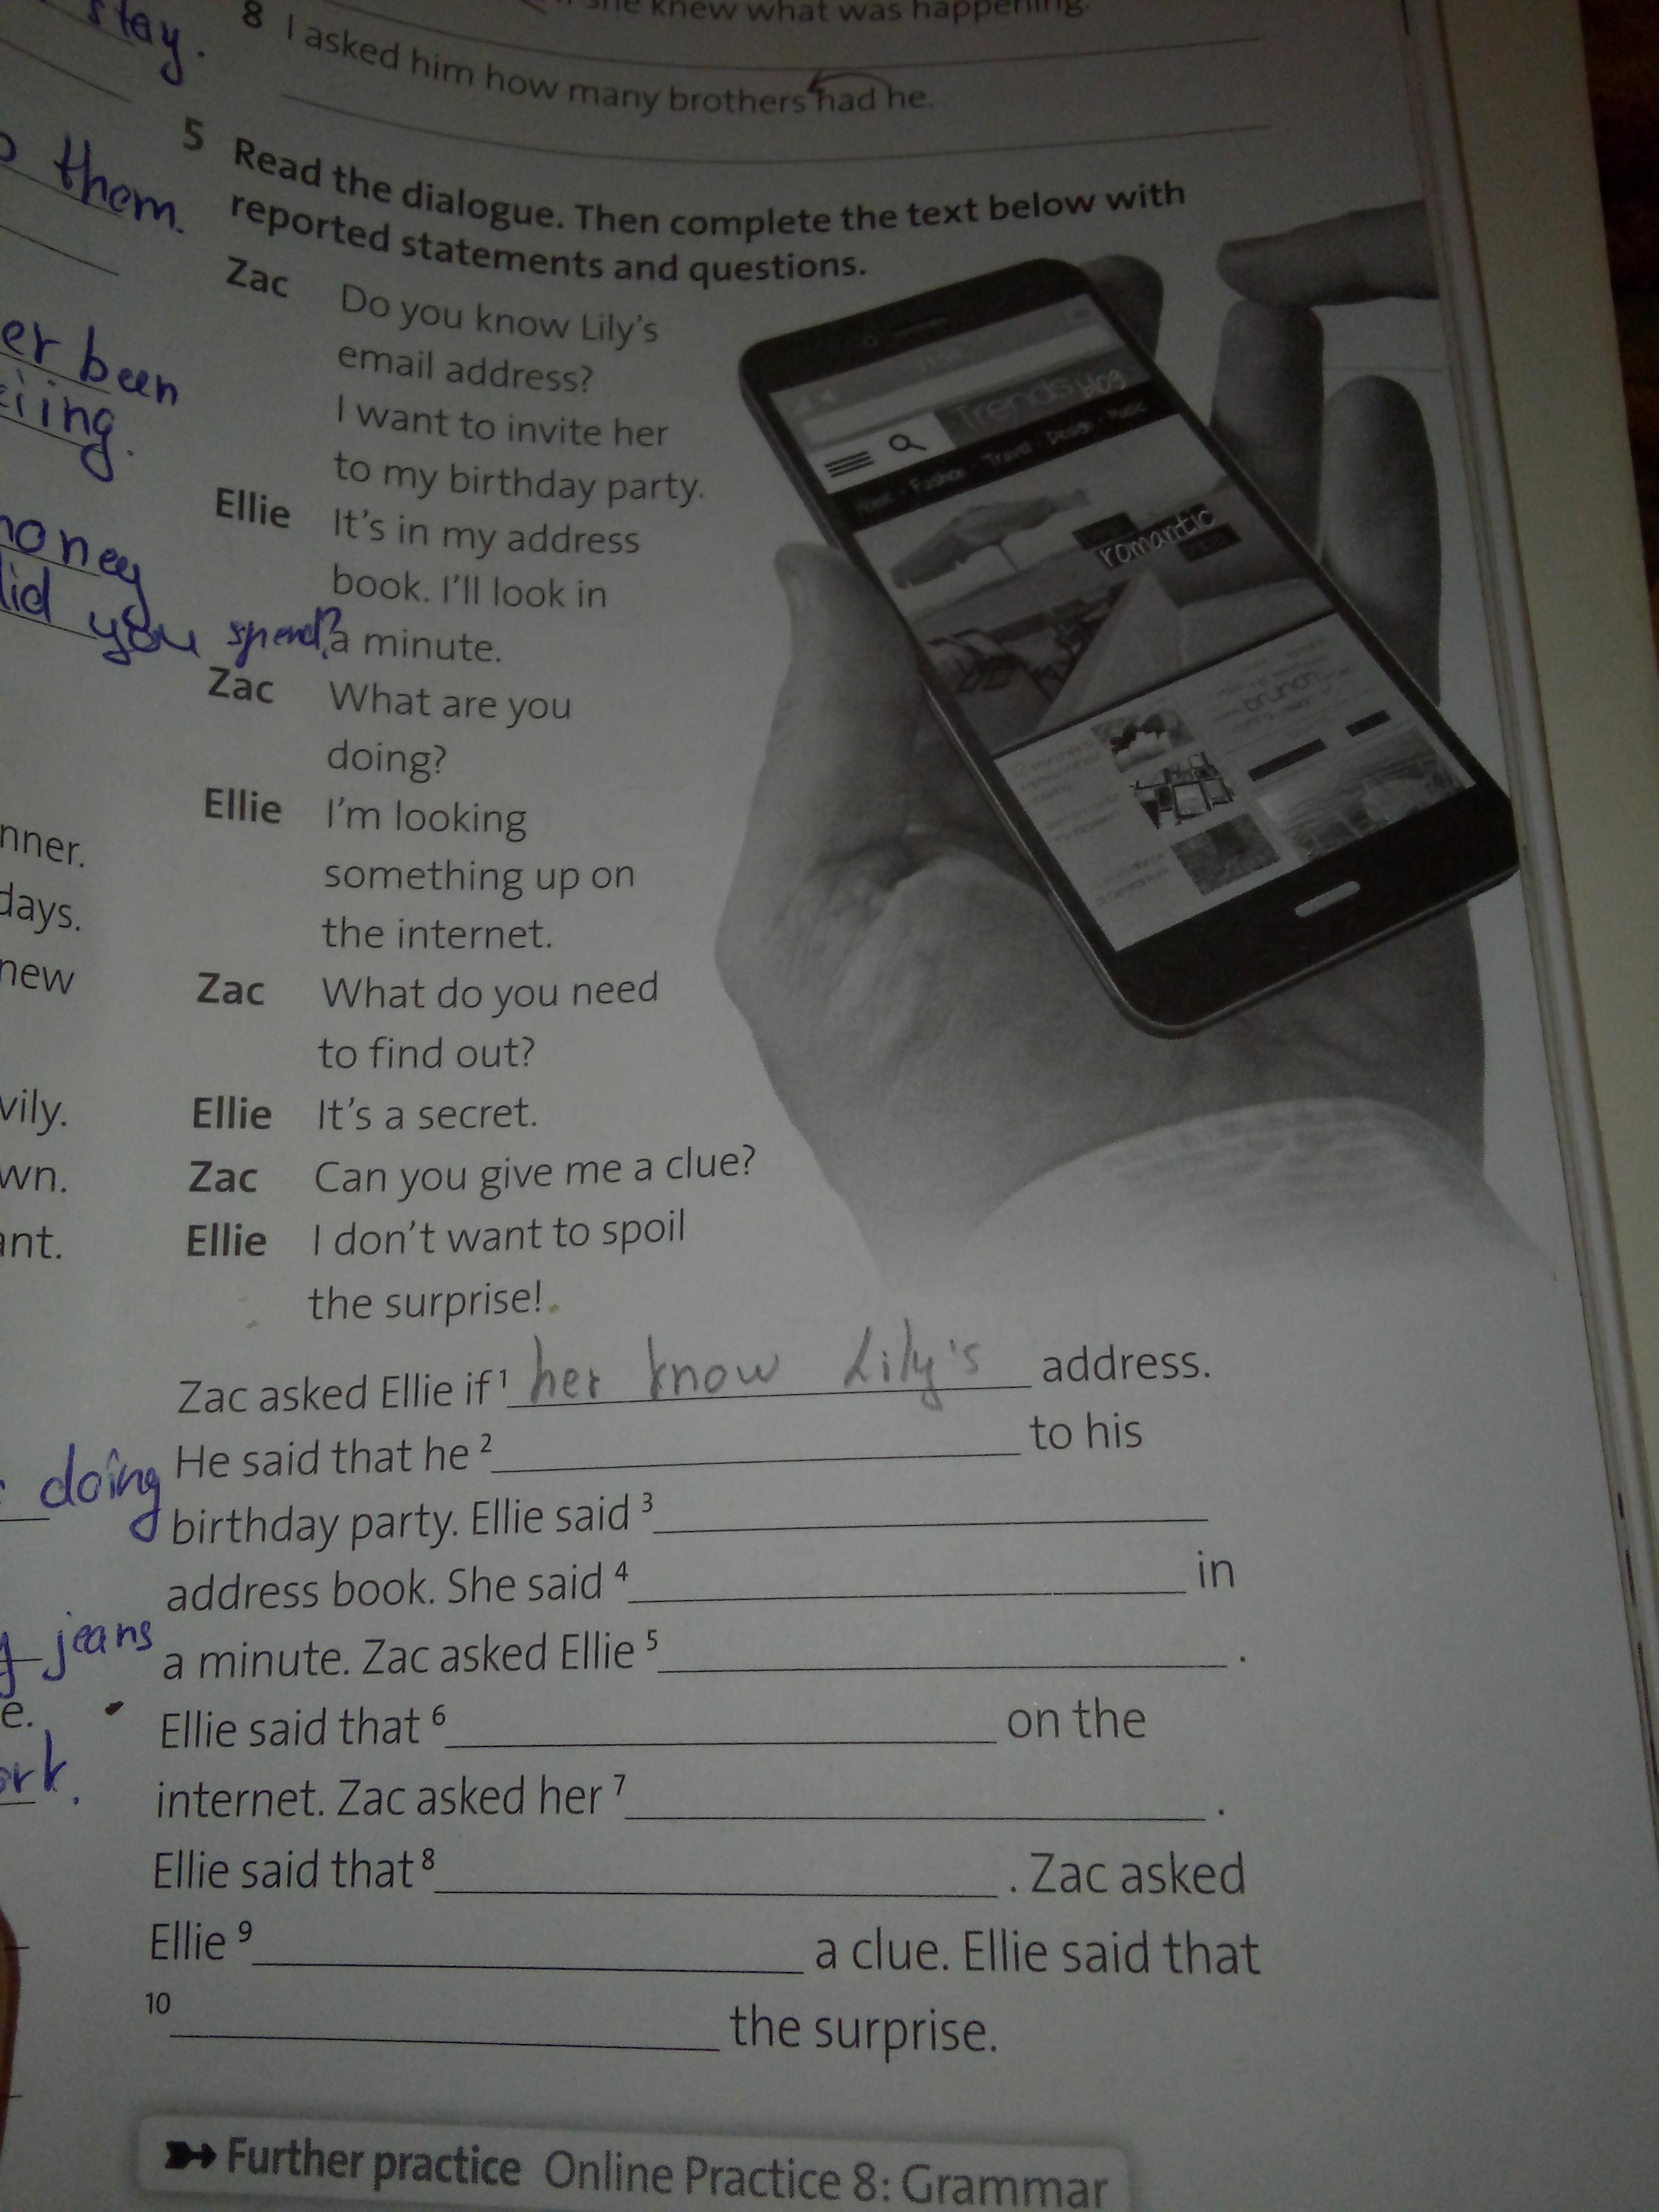 stay.
she knew what was happening.
8 I asked him how many brothers had he.
5 Read the dialogue. Then complete the text below with
reported statements and questions.
them.
Zac Do you know Lily's
email address?
er been
I want to invite her
iing.
to my birthday party.
Ellie It's in my address
oney
book. I'll look in
did you spend?
a minute.
Zac What are you
doing?
Ellie I'm looking
nner.
something up on
days.
the internet.
new
Zac What do you need
to find out?
vily.
Ellie It's a secret.
wn.
Zac Can you give me a clue?
ant.
Ellie I don't want to spoil
the surprise!
Trends blog
Home · Fashion · Travel · Design · Music
romantic
Zac asked Ellie if 1 her know Lily's address.
He said that he 2 to his
doing
birthday party. Ellie said 3
address book. She said 4 in
jeans
a minute. Zac asked Ellie 5 .
e.
Ellie said that 6 on the
ork.
internet. Zac asked her 7 .
Ellie said that 8 . Zac asked
Ellie 9 a clue. Ellie said that
10 the surprise.
Further practice Online Practice 8: Grammar